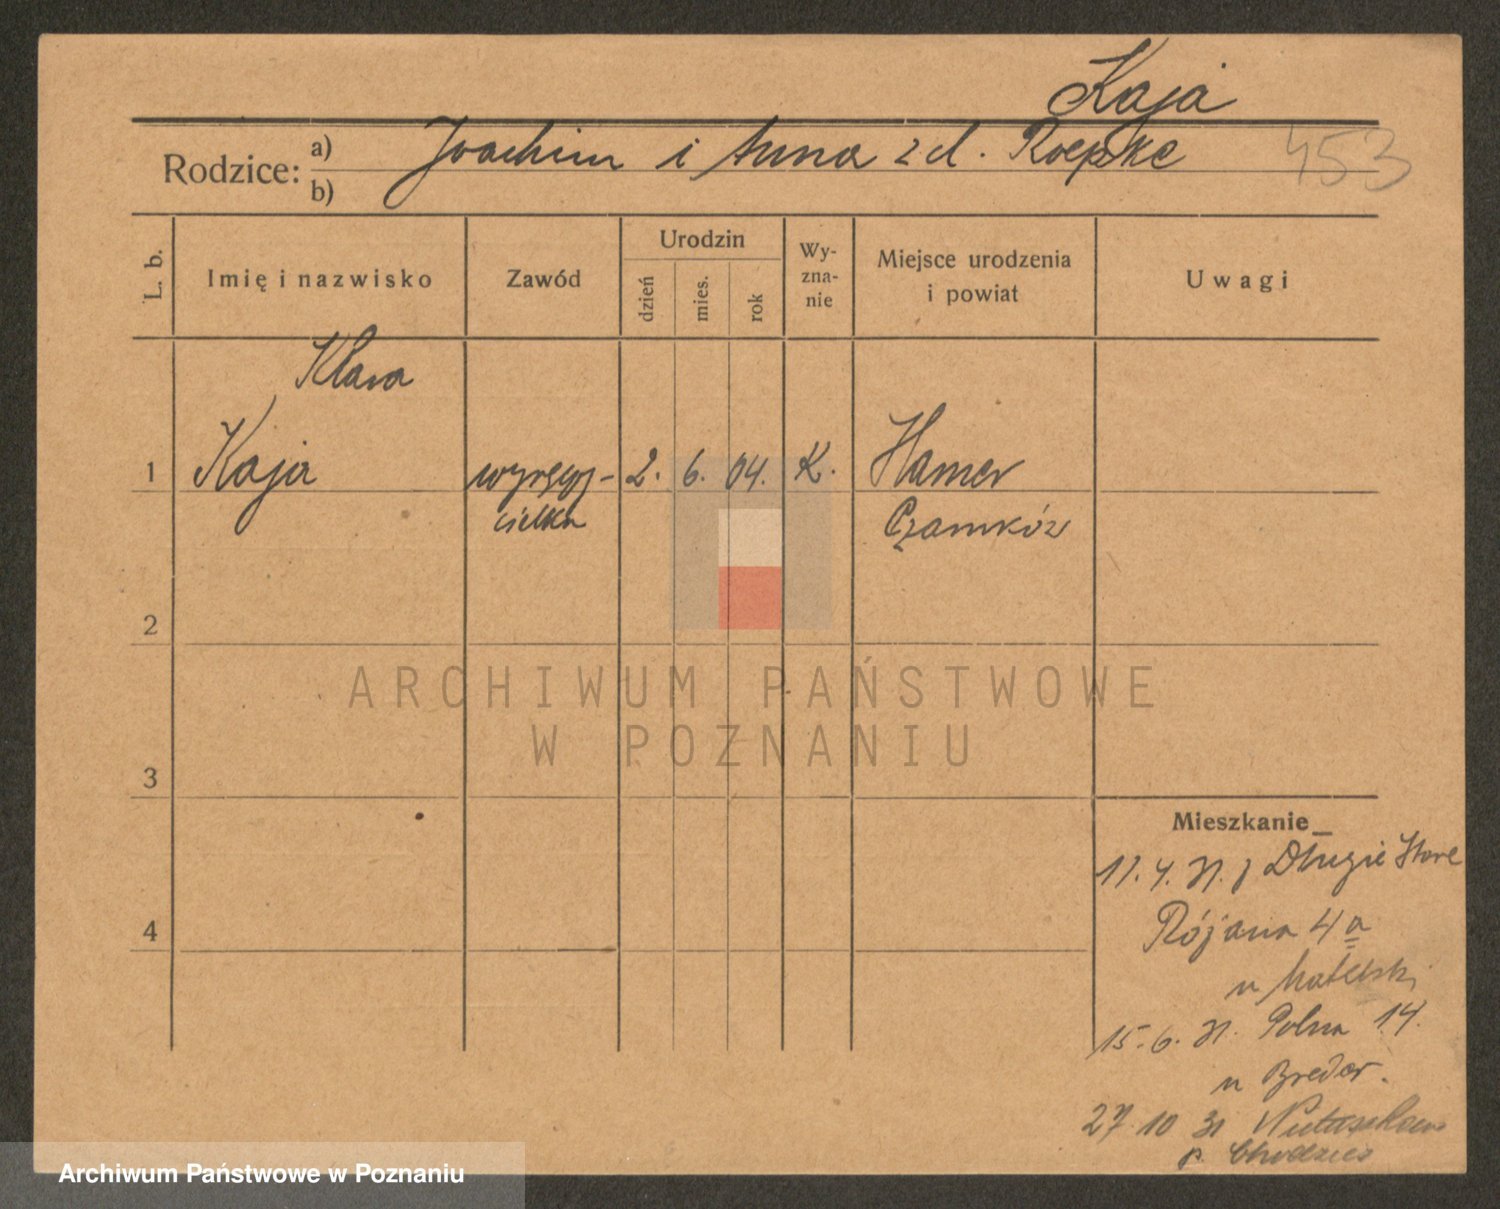 Kaja
Rodzice: a) b) Joachim i Anna z d. Roepke 453
L. b. Imię i nazwisko Zawód Urodzin dzień mies. rok Wy-zna-nie Miejsce urodzenia i powiat Uwagi
Klara
1 Kaja 2. 6. 04. K. Hamer
cielka Czarnków
2
ARCHIWUM PAŃSTWOWE
W POZNANIU
3
Mieszkanie
Długie Stare
4 4a
u
15. 6. 31. Polna 14.
u Bredor.
27 10 31
p. Chodzież
Archiwum Państwowe w Poznaniu